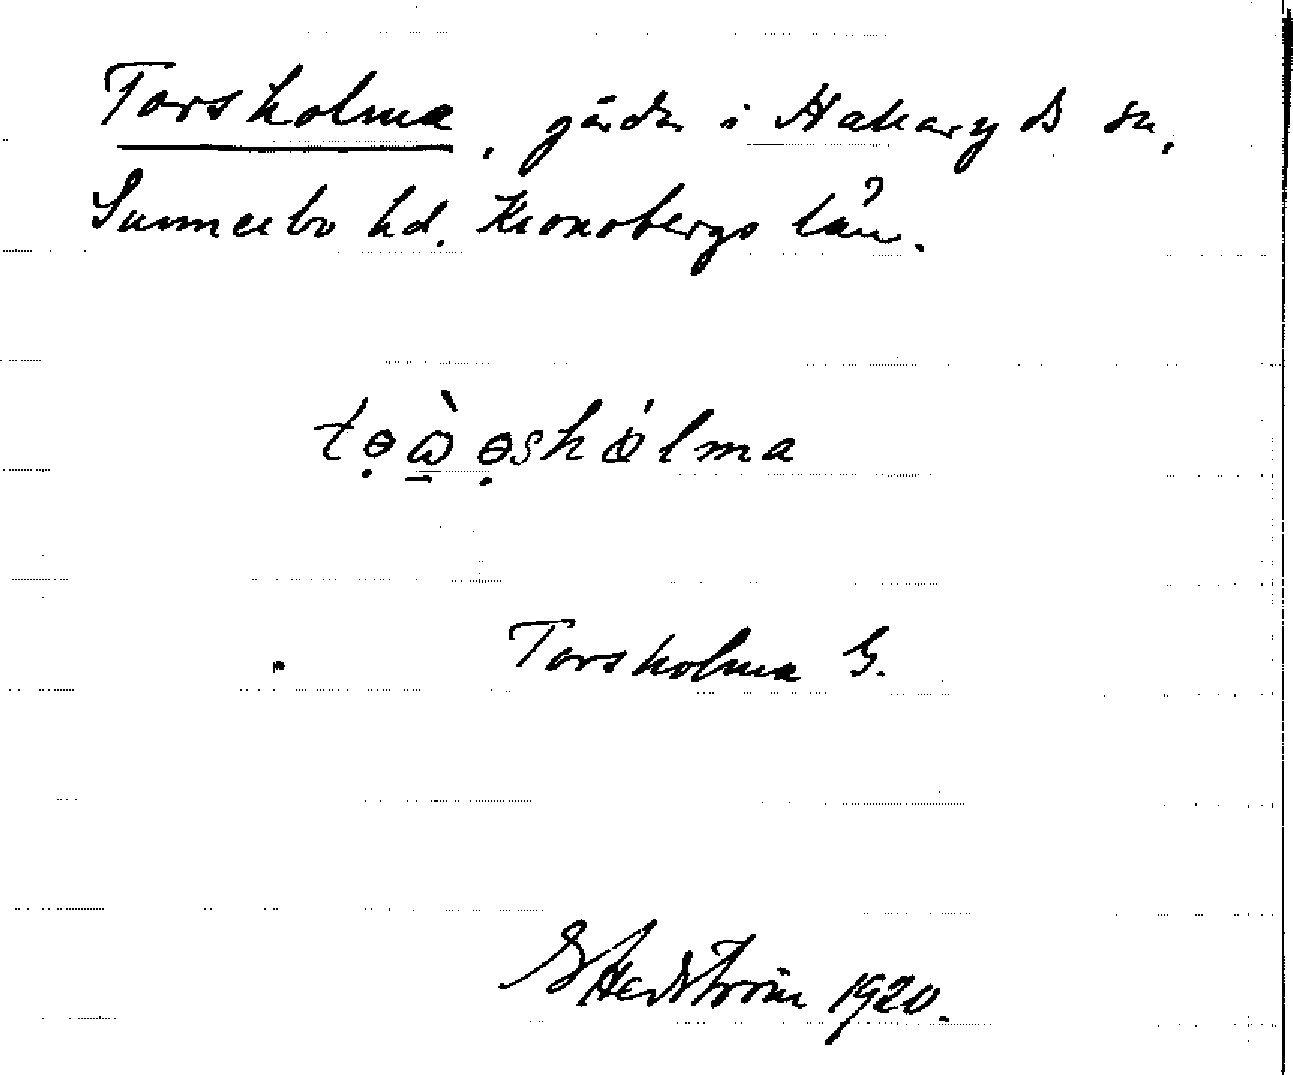 Torsholma, gårdar i Hakaryds sn,
Sunnerbo hd. Kronobergs län.
tө̣ὼ̲ө̣shɷ́lma
Torsholma G.
G Hedström 1920.